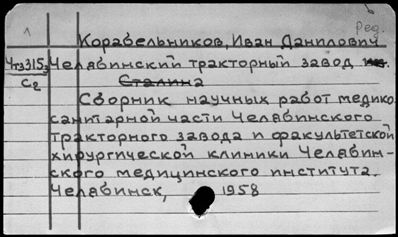 1
Ред.
Корабельников, Иван Данилович
Чтз315з Челябинский тракторный завод им.
С2 Сталина
Сборник научных работ медико
санитарной части Челябинского
тракторного завода и факультетской
хирургической клиники Челябин-
ского медицинского института.
Челябинск, 1958